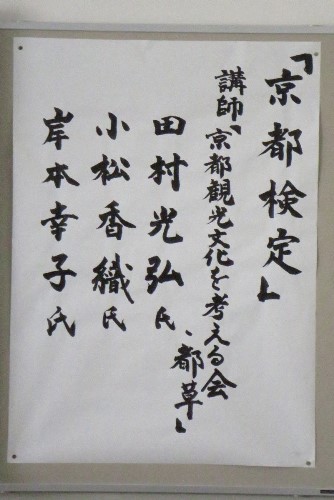 「京都検定」
講師「京都観光文化を考える会、都草」
田村光弘氏
小松香織氏
岸本幸子氏